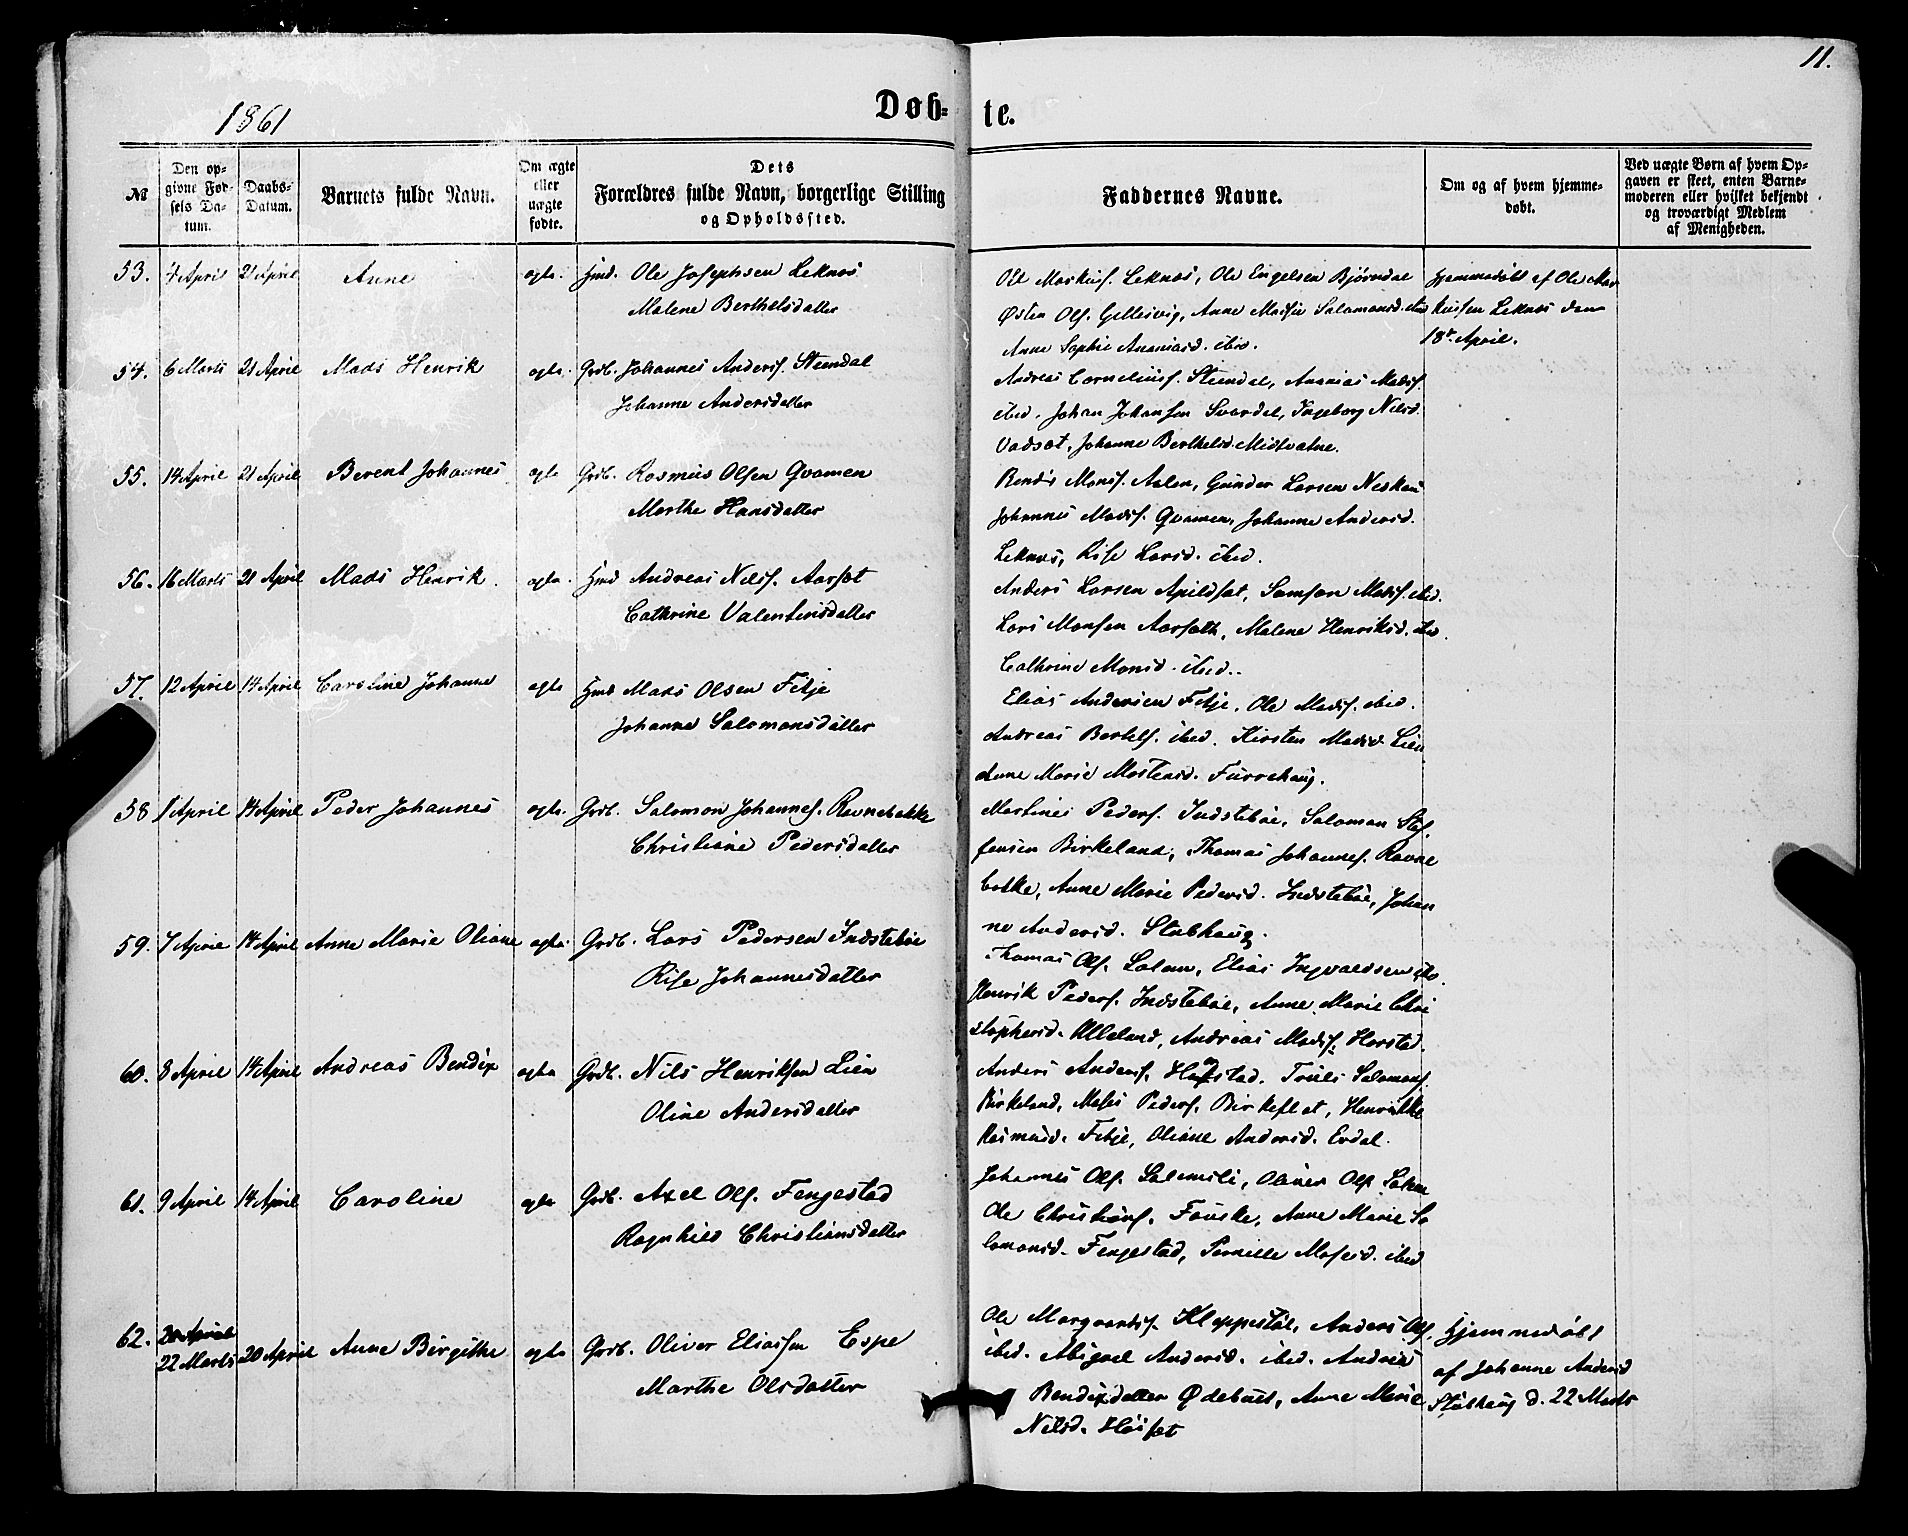 11.
1861
Døb- te.
№
Den op-
givne Fød-
sels Da-
tum.
Daabs-
Datum.
Barnets fulde Navn.
Om ægte
eller
uægte
fødte.
Dets
Forældres fulde Navn, borgerlige Stilling
og Opholdssted.
Faddernes Navne.
Om og af hvem hjemme-
døbt.
Ved uægte Børn af hvem Op-
gaven er skeet, enten Barne-
moderen eller hvilket bekjendt
og troværdigt Medlem
af Menigheden.
53. 4 April 21 April Anne ægte. Hmd. Ole Josephsen Leknes
Malene Berthelsdatter
Ole Markusf. Leknes, Ole Engelsen Bjørndal
Østen Olf. Gjellesvig, Anne Marie Salamonsd. ibid
Anne Sophie Ananiasd. ibid.
Hjemmedøbt af Ole Mar
kussen Leknes den
18de April.
54. 6 Marts 21 April Mads Henrik ægte. Grdb. Johannes Andersf. Steendal
Johanne Andersdatter
Andreas Corneliusf. Steendal, Ananias Madsf.
ibid. Johan Johansen Svardal, Ingeborg Nilsd.
Vadset, Johanne Berthelsd. Midtvatne.
55. 14 April 21 April Berent Johannes ægte Grdb. Rasmus Olsen Qvamen
Marthe Hansdatter
Bendix Monsf. Aalen, Gunder Larsen Neskau
Johannes Madsf. Qvamen, Johanne Andersd.
Leknes, Rise Larsd. ibid.
56. 16 Marts 21 April Mads Henrik. ægte. Hmd Andreas Nilsf. Aarset
Cathrine Valentinsdatter
Anders Larsen Apildset, Samson Madsf. ibid.
Lars Monsen Aarseth, Malene Henriksd. ibid.
Cathrine Monsd. ibid.
57. 12 April 14 April Caroline Johanne ægte Hmd Mads Olsen Fitje
Johanne Salomonsdatter
Elias Andersen Fitje, Ole Madsf. ibid.
Andreas Bertelf. ibid. Kirsten Madsd. Lien
Anne Marie Mortensd. Furrehaug.
58 1 April 14 April Peder Johannes ægte. Grdb. Salomon Johannesf. Ravnebakke
Christiane Pedersdatter
Martines Pedersf. Indstebøe, Salomon Stef
fensen Birkeland, Thomas Johannesf. Ravne
bakke, Anne Marie Pedersd. Indstebøe, Johan
ne Andersd. Stubhaug.
59. 7 April 14 April Anne Marie Oliane ægte. Grdb. Lars Pedersen Indstebøe
Rise Johannesdatter
Thomas Olf. Solem, Elias Ingvaldsen ibid.
Henrik Pedersf. Indstebøe, Anne Marie Chri
stophersd. Alleland, Andreas Madsf. Horstad.
60. 8 April 14 April Andreas Bendix ægte Grdb. Nils Henriksen Lien
Oline Andersdatter
Anders Andersf. Horstad. Truls Salomonsf.
Birkeland, Moses Pedersf. Birkeflet, Henrikke
Rasmusd. Fitje, Oliane Andersd. Evdal.
61. 9 April 14 April Caroline ægte Grdb. Axel Olf. Fengestad
Ragnhild Christiansdatter
Johannes Olf. Solemsli, Oliver Olf. Solem
Ole Christiansf. Fauske, Anne Marie Sa
lomonsd. Fengestad, Pernille Mosesd. ibid
62. 22 Marts 20 April Anne Birgithe ægte Grdb. Oliver Eliassen Espe
Marthe Olsdatter
Ole Margvardsf. Kleppestøl, Anders Olf.
ibid. Abigael Andersd. ibid. Andrea
Bendixdatter Ødebuet, Anne Marie
Nilsd. Høiset
Hjemmedøbt
af Johanne Andersd
Stubhaug d. 22 Marts